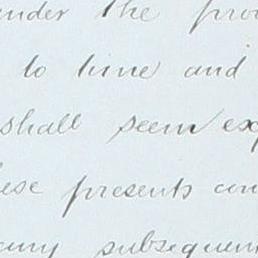 under the pro
to time and
shall seem exp
ese presents and
any subsequen